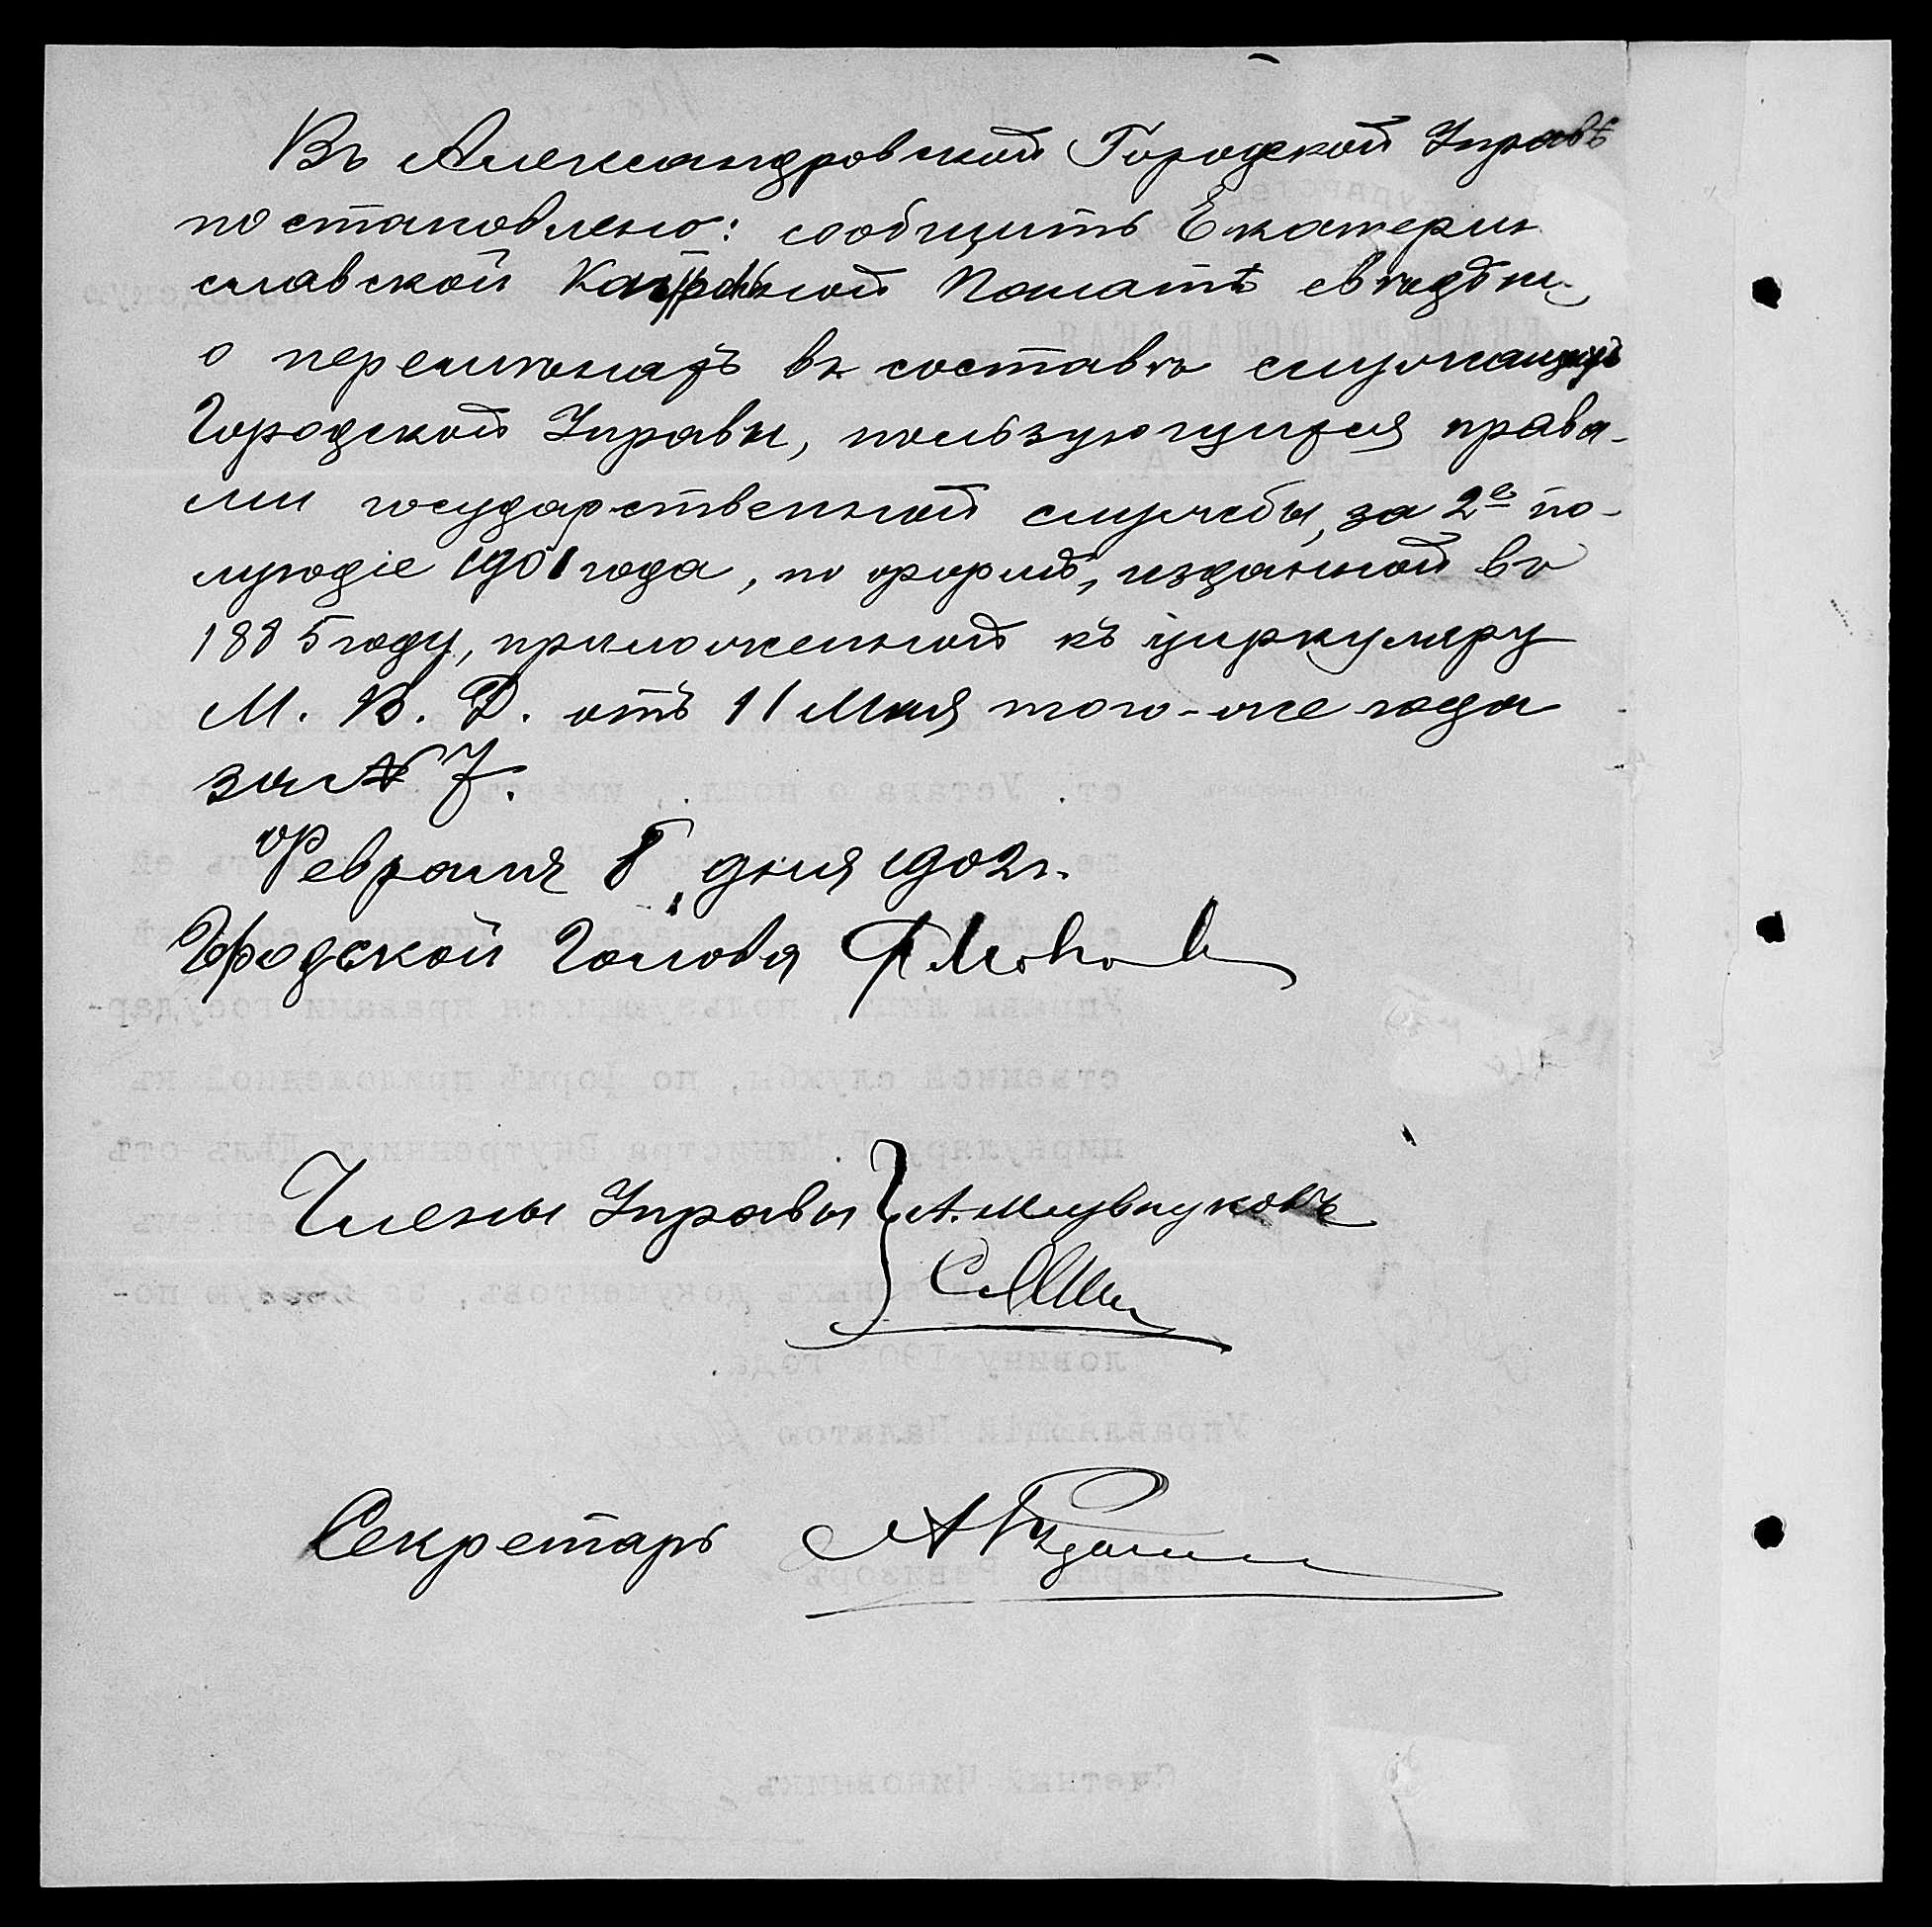 Въ Александровской Городской Управѣ
постановлено: сообщить Екатерин
славской Контрольной Палатѣ свѣдѣни
о перемѣнахъ въ составѣ служащихъ
Городской Управы, пользующихся права-
ми государственной службы, за 2е по-
лугодіе 1901 года, по формѣ, изданной въ
1885 году, приложенной къ циркуляру
М. В. Д. отъ 11 Мая того-же года
за № 7.
Февраля 8 дня 1902 г.
Городской Голова
Члены Управы
Секретарь